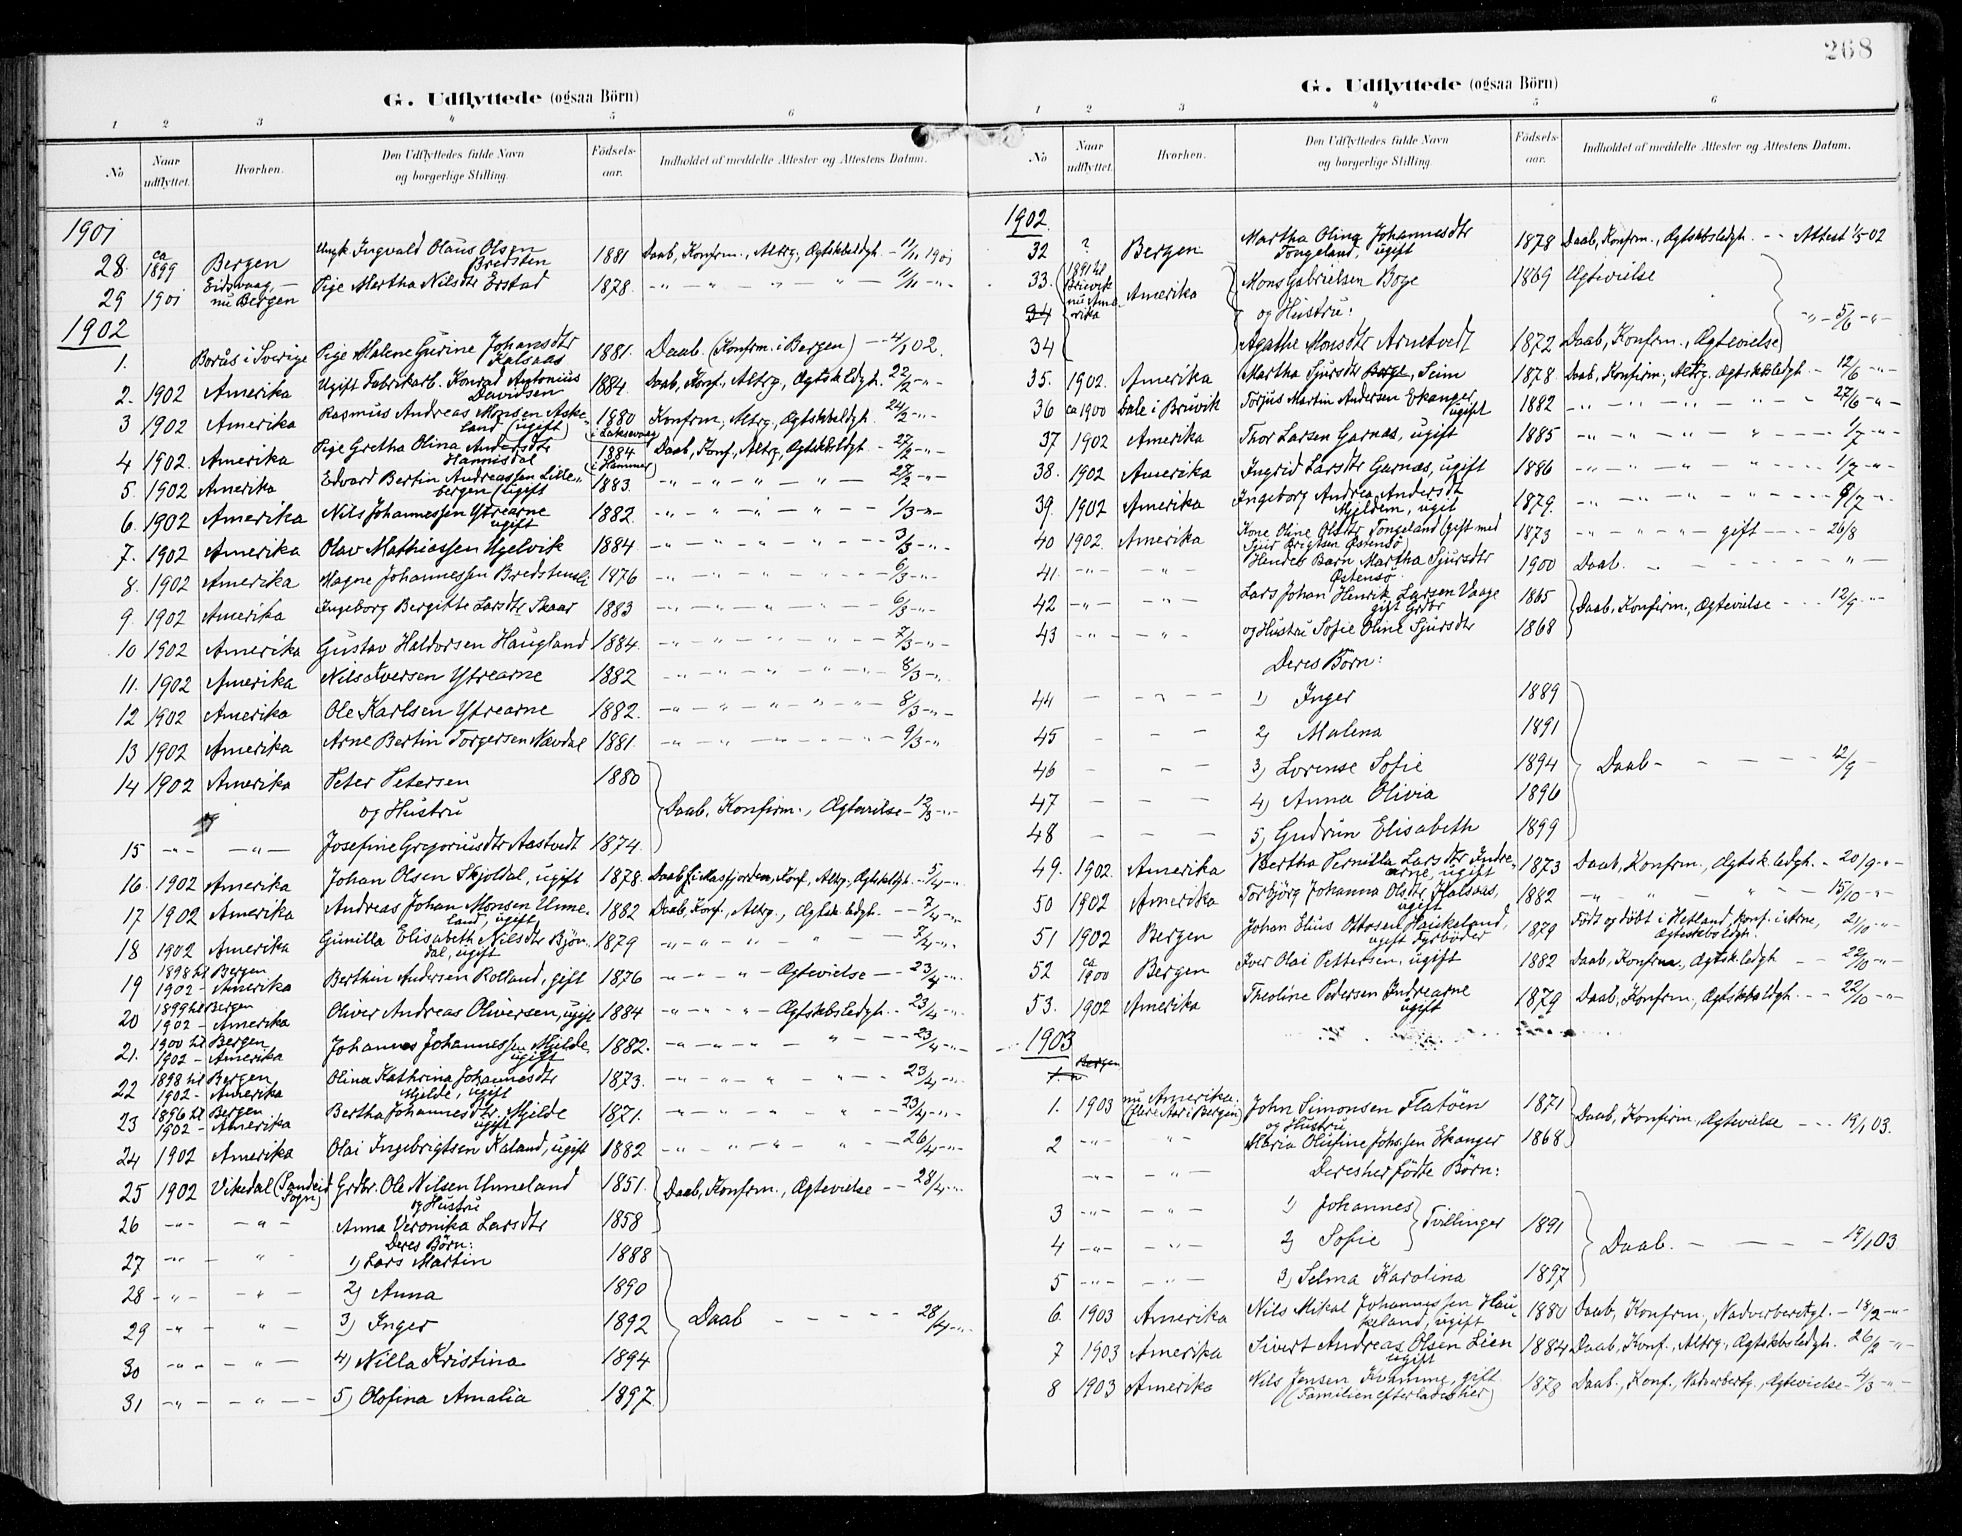 268
G. Udflyttede (ogsaa Börn)
1 2 3 4 5 6
No Naar udflyttet. Hvorhen. Den Udflyttedes fulde Navn og borgerlige Stilling. Födsels-aar. Indholdet af meddelte Attester og Attestens Datum.
1901
28. ca 1899 Bergen Ungk. Ingvald Olaus Olsen Bredsten 1881 Daab, Konfirm., Altrg., Ægtskbsledgh. - 11/11 1901
29 1901 Eidsvaag, - nu Bergen Pige Martha Nilsdtr Erstad 1878. -"- -"- " - " - 11/11 -"-
1902
1. Borås i Sverige Pige Malene Gurine Johansdtr Kalsaas 1881. Daab. (Konfrm. i Bergen) - 4/1 02.
2. 1902 Amerika Ugift Fabrikarb. Konrad Antonius Davidsen 1884. Daab, Konf., Altrg., Ægtskbsledgh. 22/2 -"-
3 1902 Amerika Rasmus Andreas Monsen Aske-land (ugift) 1880 i Laksevaag Konfrm., Altrg., Ægtskbsledgh. 24/2 -"-
4 1902. Amerika Pige Gretha Olina Andersdtr Hannisdal 1884 (i Hammer) Daab, Konf., Altrg., Ægtskbsledgh. - 27/2 -"-
5. 1902 Amerika Edvard Bertin Andreassen Lille-bergen (ugift 1883. -"- -"- -"- - " - 27/2 -"-
6. 1902 Amerika Nils Johannessen Ytrearne ugift 1882. -"- -"- -"- - " - 1/3 -"-
7. 1902 Amerika Olav Mathiassen Hjelvik 1884 -"- -"- -"- - " - 3/3 -"-
8. 1902 Amerika Magne Johannessen Bredstenslí 1876 -"- -"- " - " - 6/3 -"-
9. 1902 Amerika Ingeborg Bergitte Larsdtr Skaar 1883 -"- -"- -"- - " - 6/3 -"-
10 1902 Amerika Gustav Haldorsen Haugland 1884. -"- -"- -"- -"- - 7/3 -"-
11. 1902 Amerika Nils Iversen Ytrearne 1882 -"- -"- " - " - 8/3 -"-
12 1902 Amerika Ole Karlsen Ytrearne 1882. -"- -"- -"- -"- - 8/3 -"-
13 1902 Amerika Arne Bertin Torgersen Nævdal 1881. -"- -"- -"- -"- - 9/3 -"-
14 1902 Amerika Peter Petersen 1880
og Hustru Daab, Konfirm., Ægtevielse - 12/3 -"-
15 -"- -"- Josefine Gregoriusdtr Aastvedt 1874.
16. 1902 Amerika Johan Olsen Skjoldal, ugift 1878. Daab i Masfjorden, Konf., Altrg., Ægtskbsledgh. - 5/4 -"-
17 1902 Amerika Andreas Johan Monsen Unne-land, ugift 1882 Daab, Konf., Altrg., Ægtsk.ledgh. - - 7/4 -"-
18 1902 Amerika Gunilla Elisabeth Nilsdtr Bjørn-dal, ugift 1879 -"- -"- -"- " - - 7/4 -"-
19 1898 til Bergen 1902 - Amerika Berthin Andersen Rolland, gift 1876 -"- -"- " - Ægtevielse - - 23/4 -"-
20 1899 til Bergen 1902 - Amerika Oliver Andreas Oliversen, ugift 1884 -"- -"- " - Ægtskbsledgh. - 23/4 -"-
21. 1900 til Bergen 1902 - Amerika Johannes Johannessen Mjelde, ugift 1882. -"- -"- " - " - 23/4 -"-
22 1898 til Bergen 1902 - Amerika Olina Kathrina Johannesdtr Mjelde, ugift 1873. -"- -"- " - " - 23/4 -"-
23 1896 til Bergen 1902 - Amerika Bertha Johannesdtr. Mjelde ugift 1871. -"- -"- -"- " - 23/4 -"-
24 1902 Amerika Olai Ingebrigtsen Kaland, ugift 1882 -"- " - " - " - 26/4 -"-
25 1902 Vikedal (Sandeid Sogn) Grdbr. Ole Nilsen Unneland 1851. Daab, Konfrm., Ægtevielse - - 28/4 -"-
og Hustru
26 -"- -"- Anna Veronika Larsdtr 1858
Deres Börn:
27 -"- " 1) Lars Martin 1888
28 -"- -"- 2) Anna 1890
29 -"- " - 3) Inger 1892 Daab - - - - 28/4 -"-
30 -"- - " - 4) Nilla Kristina 1894
31 -"- - " - 5) Olofina Amalia 1897
G. Udflyttede (ogsaa Börn)
1 2 3 4 5 6
No Naar udflyttet. Hvorhen. Den Udflyttedes fulde Navn og borgerlige Stilling. Födsels-aar. Indholdet af meddelte Attester og Attestens Datum.
1902
32 ? Bergen Martha Olina Johannesdtr Tongeland, ugift 1878 Daab, Konfrm., Ægtskbsledgh. - - Attest 1/5 02
33. 1891 til Bruvik nu Ame-rika Amerika Mons Gabrielsen Boge 1869 Ægtevielse
34 og Hustru: " - 5/6 -"-
34 Agathe Monsdtr Arnetvedt 1872 Daab, Konfrm., Ægtevielse
35. 1902. Amerika Martha Sjursdtr Borge, Seim 1878. Daab, Konfirm., Altrg. Ægtskbsledgh. - 12/6 -"-
36 ca 1900 Dale i Bruvik Torjus Martin Andersen Ekanger, ugift 1882 -"- -"- -"- " - 27/6 -"-
37 1902 Amerika Thor Larsen Garnæs, ugift 1885 -"- -"- -"- -"- - 1/7 -"-
38. 1902 Amerika Ingrid Larsdtr Garnæs, ugift 1886 -"- -"- -"- " - - 1/7 -"-
39. 1902 Amerika Ingeborg Andrea Andersdt Mjeldem, ugift 1879. -"- " - " - " - - 9/7 -"-
40 1902. Amerika Kone Oline Olsdtr Tongeland (gift med Sjur Brigtsen Østensø) 1873 -"- " - " - gift - - - 26/8
41 -"- " - Hendes Barn Martha Sjursdtr Østensø 1900 Daab. - - - - " -
42 -"- " - Lars Johan Henrik Larsen Vaage gift Grdbr 1865 Daab, Konfirm., Ægtevielse - - - 12/9 -"-
43 -"- -"- og Hustru Sofie Oline Sjursdtr 1868
Deres Börn:
44 - - " - - 1) Inger 1889
45 - - - 2) Malena 1891
46 - - 3) Lorense Sofie 1894 Daab - - - - - 12/9 -
47 - - - 4) Anna Olivia 1896
48 - - - 5) Gudrun Elisabeth 1899
49. 1902. Amerika Bertha Pernilla Larsdtr Indre-arne, ugift 1873 Daab, Konfrm., Ægtsk.ledgh. - 20/9 -"-
50 1902 Amerika Torbjörg Johanna Olsdtr Kalsaas, ugift 1882 -"- " " - " - 15/10 -"-
51 1902 Bergen Johan Elius Ottosen Haukeland, ugift Fyrböder 1879 Födt og döbt i Hetland, Konf. i Arne, Ægteskbsldgh. 21/10 -"-
52 ca 1900 Bergen Iver Olai Pettersen, ugift 1882 Daab, Konfrm., Ægtsk.ledgh - - 22/10 -"-
53. 1902 Amerika Theoline Pedersen Indrearne ugift 1879 Daab, Konfrm., Ægtskbsldgh. - - 22/10 -"-
1903
1. Bergen
1. 1903 nu Amerika. (flere Aar i Bergen) John Simonsen Flatöen 1871 Daab, Konfirm., Ægtevielse - - - 19/1 03.
og Hustru
2 -"- " - Maria Olufine Johssen Ekanger 1868
-"- - " - Deres her födte Börn:
3 -"- - " - 1) Johannes Tvillinger 1891
4 -"- - " - 2) Sofie Daab. - - - - 19/1 03
5 -"- - " - 3) Selma Karolina 1897
6. 1903 Amerika Nils Mikal Johannessen Hau-keland, ugift 1880 Daab, Konfrm., Nadverberetgl. - 18/2 -"-
7 1903 Amerika Sivert Andreas Olsen Lien ugift 1884 Daab, Konf., Altrg., Ægtskbsledgh. 26/2 -"-
8 1903 Amerika Nils Jensen Kvamme, gift (Familien efterlades her) 1878 Daab., Konf., Nadverbertg., Ægtevielse - 4/3 -"-